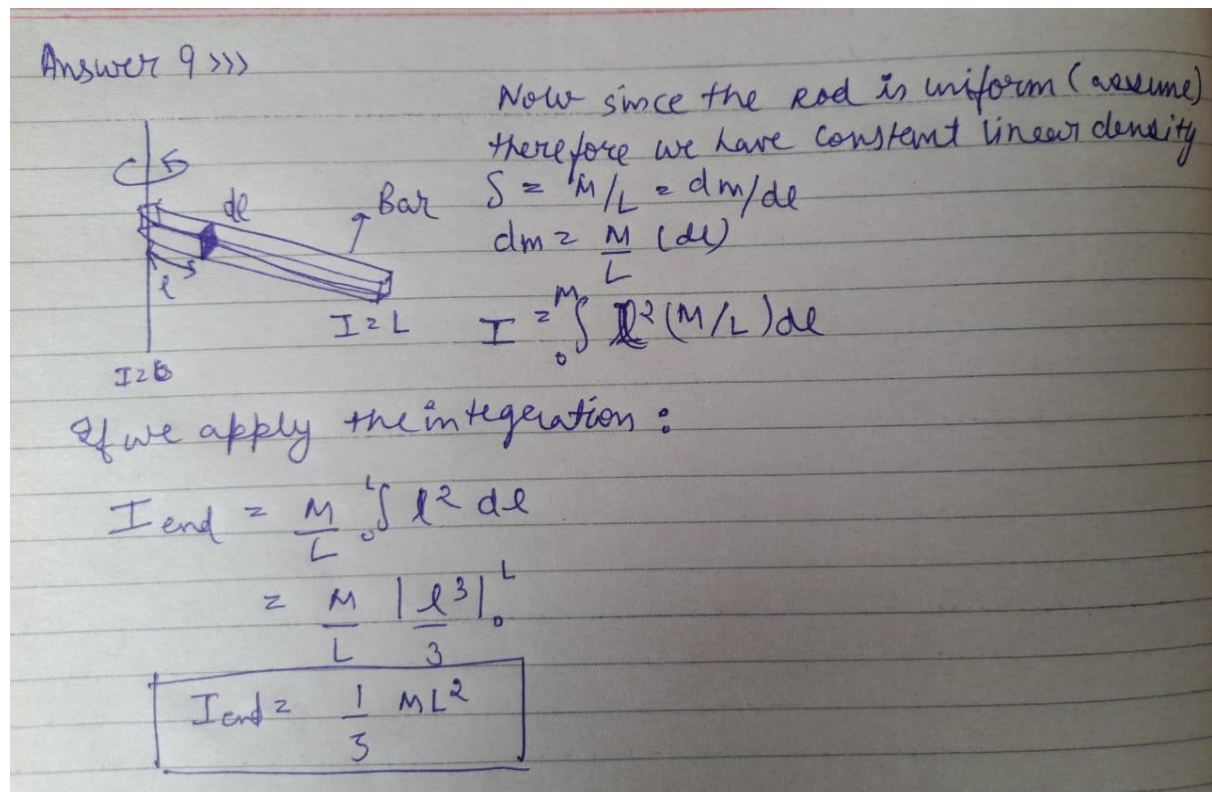 Answer 9 >>>
Now since the Rod is uniform (assume)
therefore we have constant linear density
δ = M/L = dm/dl
dm = M/L (dl)
dl
Bar
l
I = L
I = 0
I = ₀∫ᴹ l² (M/L) dl
If we apply the integeration :
I end = M/L ₀∫ᴸ l² dl
= M/L |l³/3|₀ᴸ
I end = 1/3 ML²